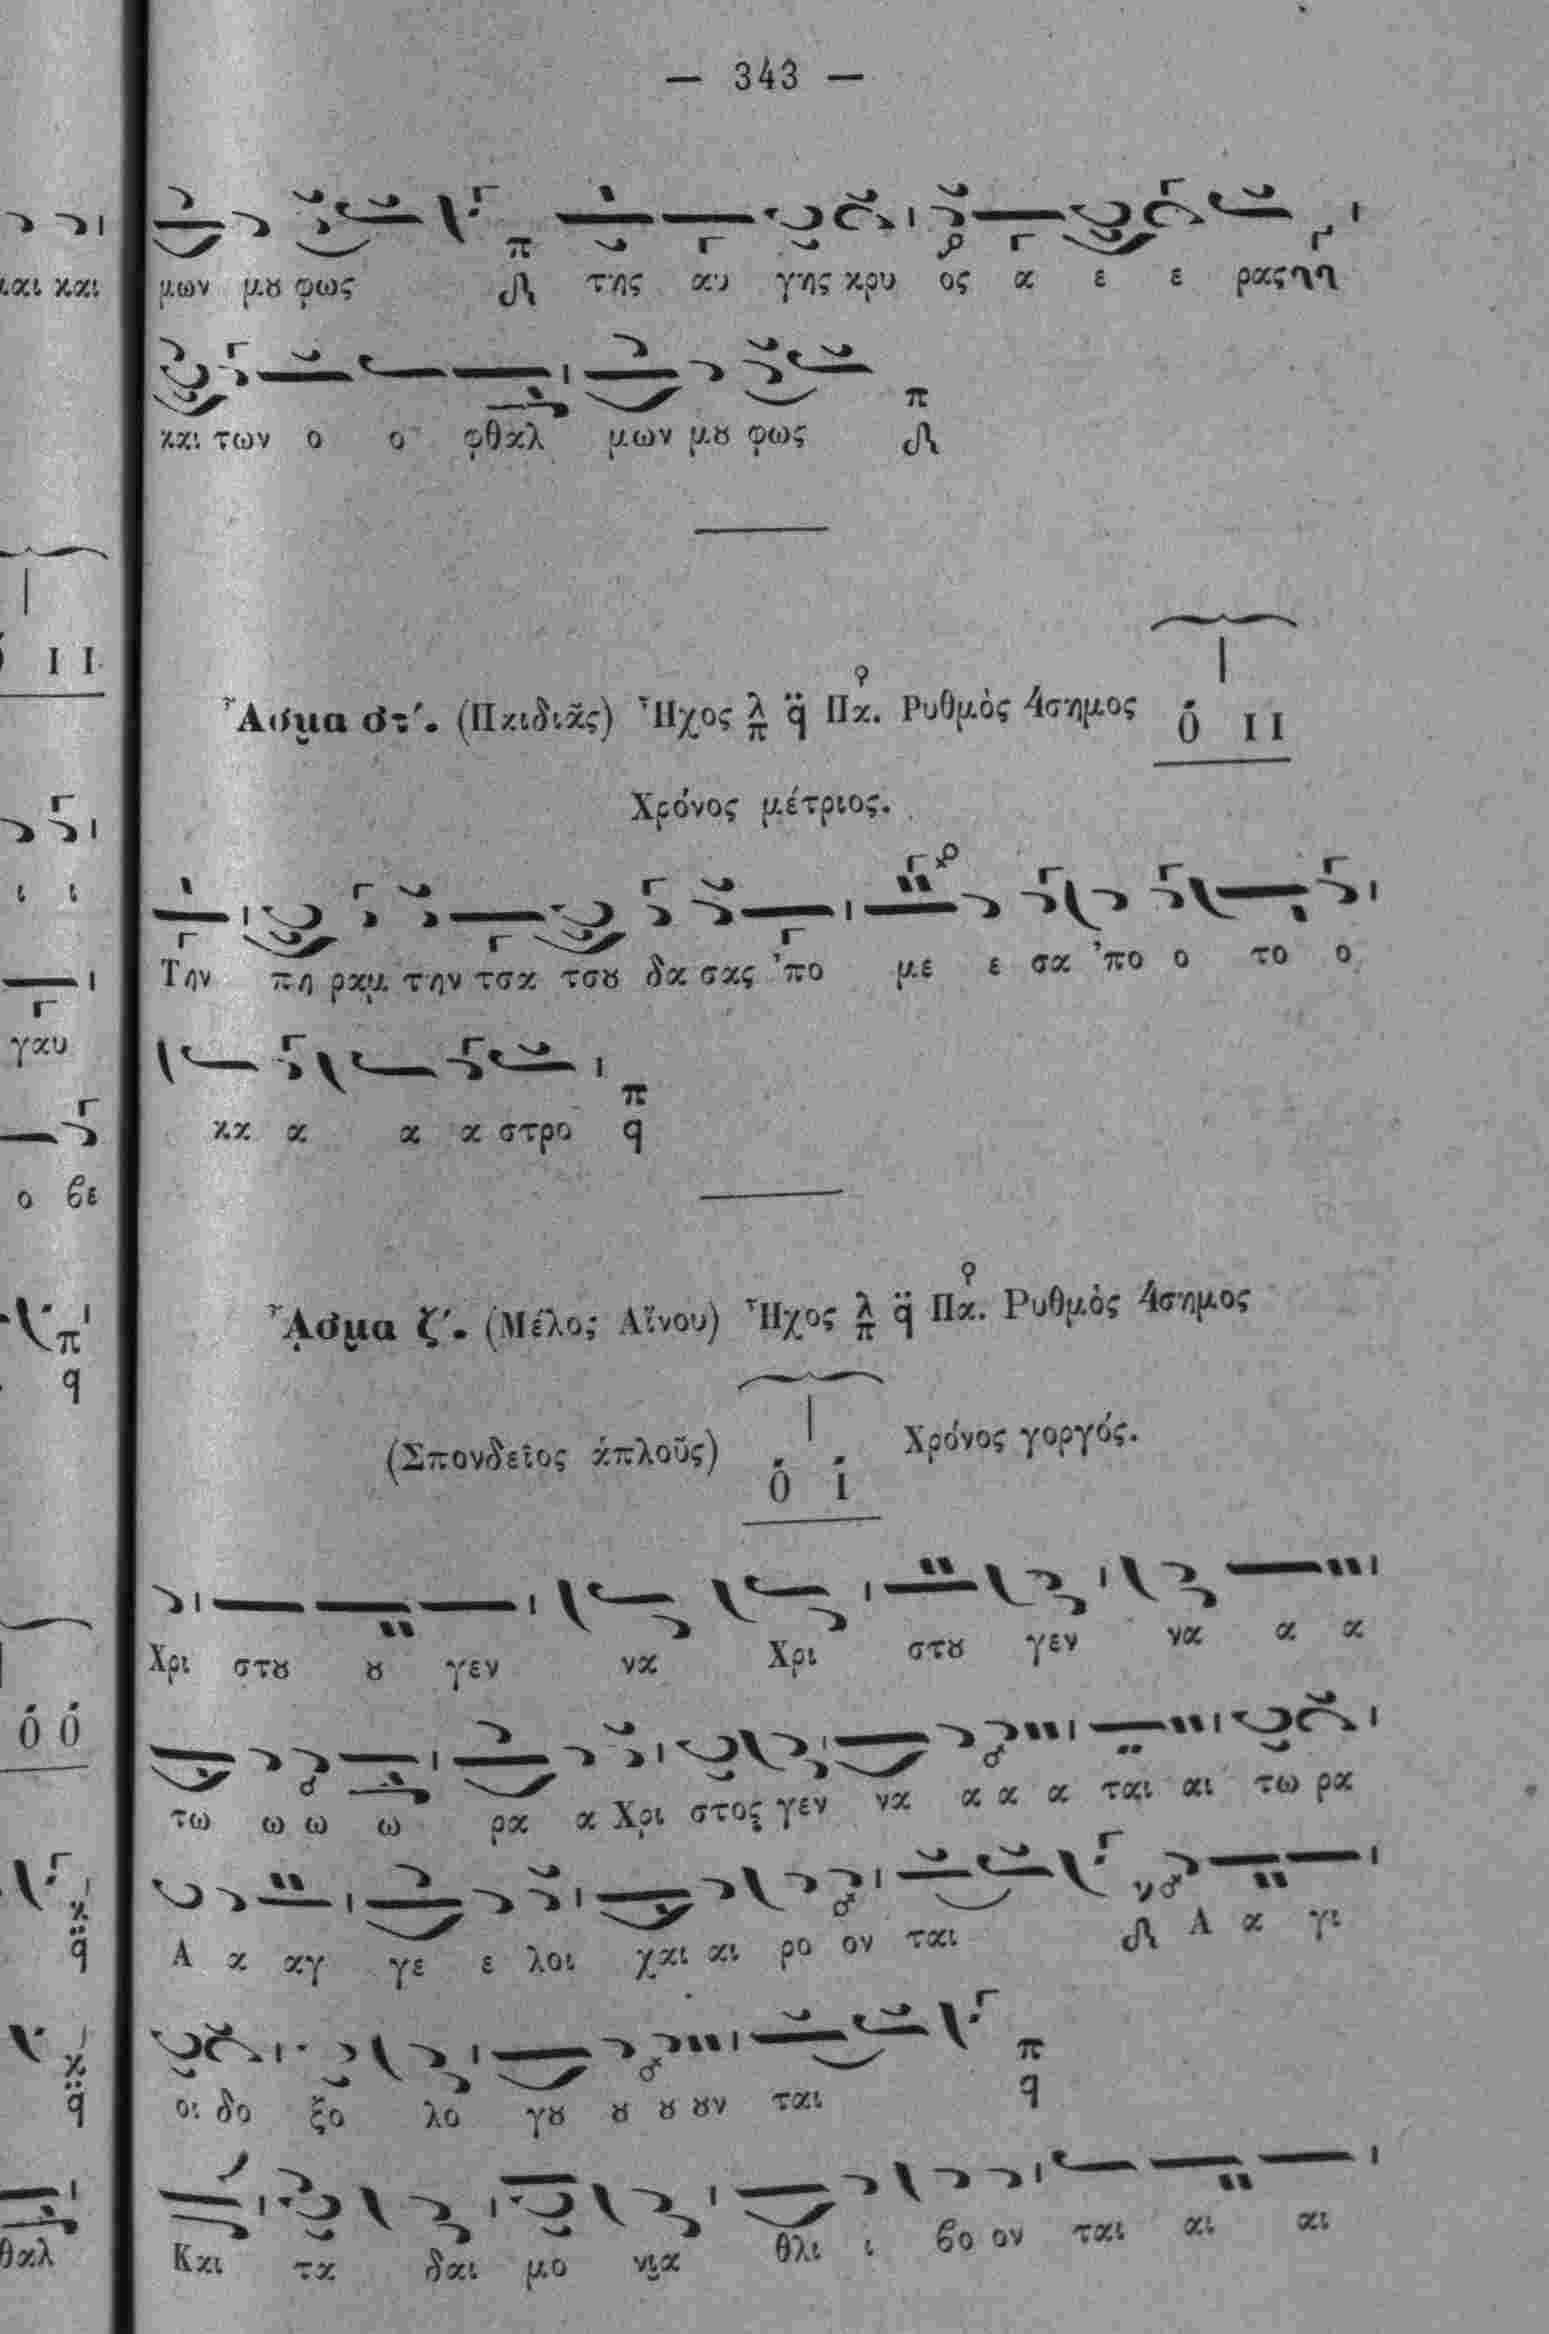 — 343 —
μων μȣ φως π της αυ γης κρυ ος α ε ε ρας
και των ο ο φθαλ μων μȣ φως π
Ἆσμα στ΄. (Παιδιᾶς) Ἦχος λ π q̈ Πα. Ρυθμὸς 4σημος Ó Ι Ι
Χρόνος μέτριος.
Την πη ραμ την τσα τσȣ δα σας ’πο με ε σα ’πο ο το ο
κα α α α στρο π q
Ἆσμα ζ΄. (Μέλος Αἴνου) Ἦχος λ π q̈ Πα. Ρυθμὸς 4σημος
(Σπονδεῖος ἁπλοῦς) Ó Ί Χρόνος γοργός.
Χρι στȣ ȣ γεν να Χρι στȣ γεν να α α
τω ω ω ω ρα α Χρι στος γεν να α α α ται αι τω ρα
Α α αγ γε ε λοι χαι αι ρο ον ται ν Α α γι
οι δο ξο λο γȣ ȣ ȣ ȣν ται π q
Και τα δαι μο νια θλι ι βο ον ται αι αι